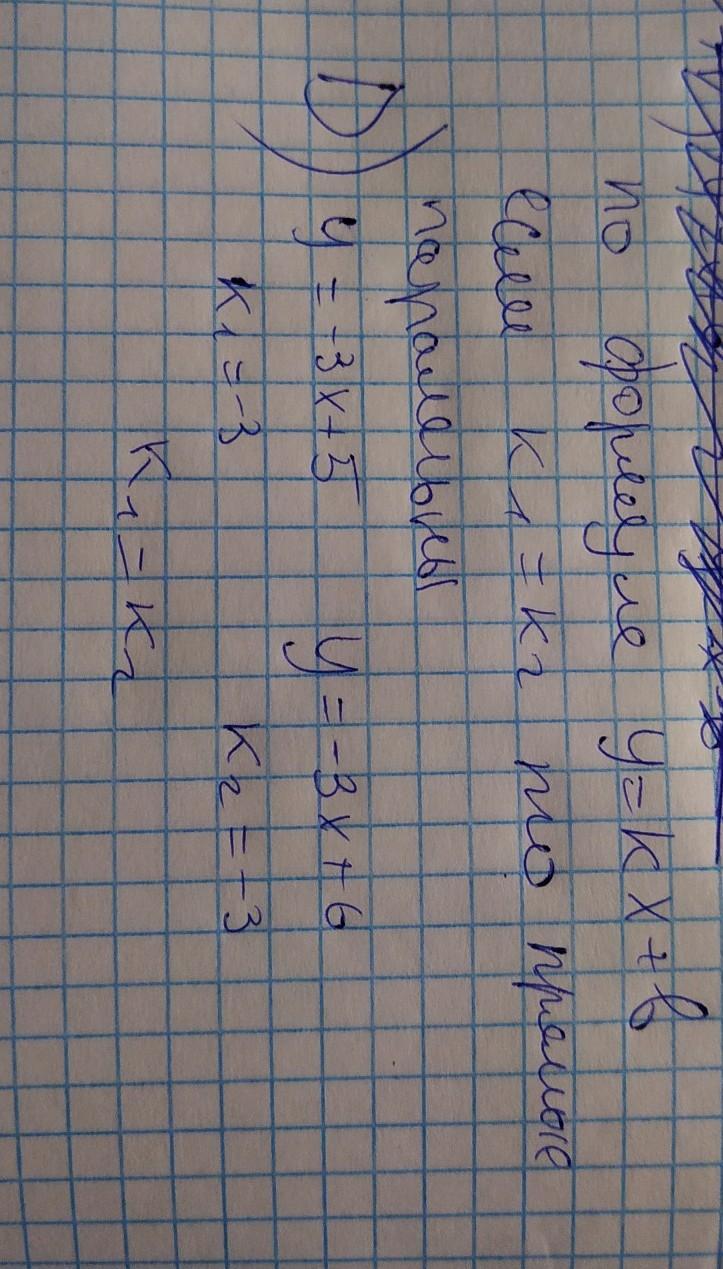 по формуле y=kx+b
если k1=k2 то прямые
паралельны
D) y=-3x+5 y=-3x+6
k1=-3 k2=-3
k1=k2